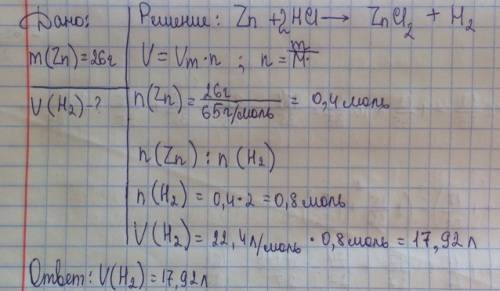 Дано: Решение: Zn + 2HCl → ZnCl₂ + H₂
m(Zn)=26г V = Vm·n ; n = m/M
V(H₂)-? n(Zn) = 26г/65г/моль = 0,4 моль
n(Zn) : n(H₂)
n(H₂) = 0,4·2 = 0,8 моль
V(H₂) = 22,4л/моль · 0,8моль = 17,92л
Ответ: V(H₂) = 17,92л